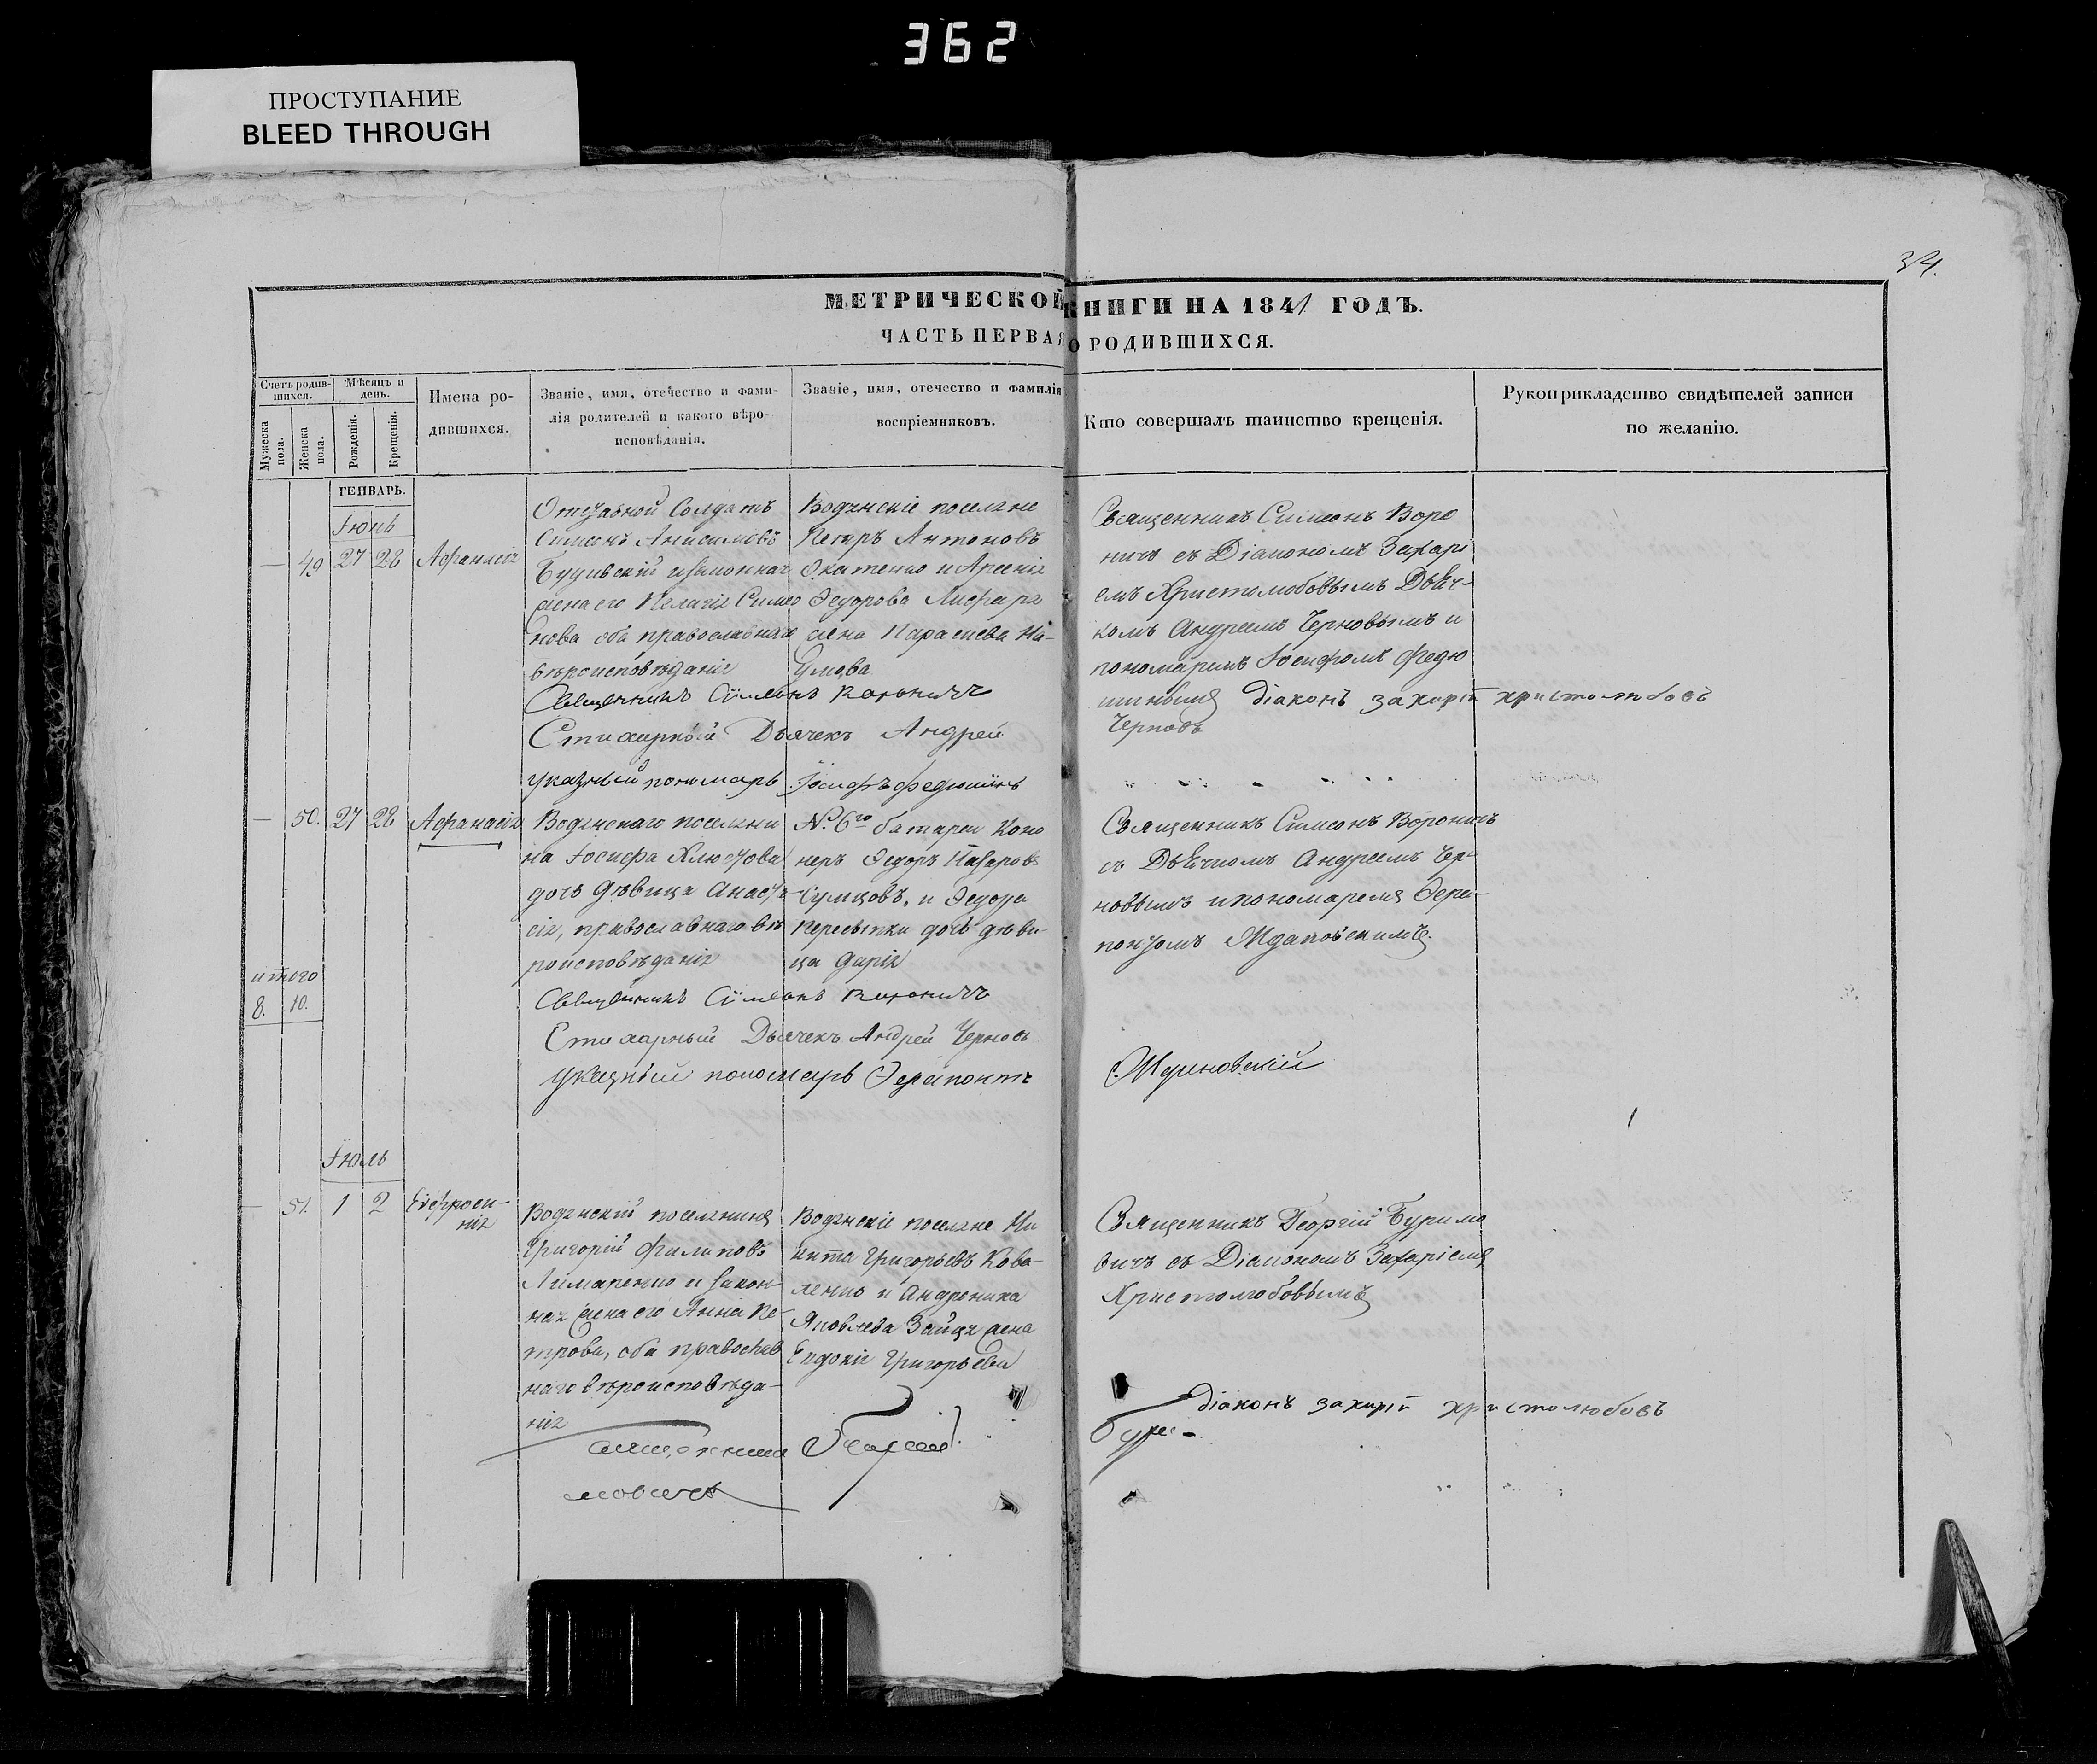 362
ПРОСТУПАНИЕ
BLEED THROUGH
34.
МЕТРИЧЕСКОЙ КНИГИ НА 1841 ГОДЪ.
ЧАСТЬ ПЕРВАЯ О РОДИВШИХСЯ.
Счетъ родив-
шихся.
Мужеска пола.
Женска пола.
Мѣсяцъ и
день.
Рожденія.
Крещенія.
Имена ро-
дившихся.
Званіе, имя, отечество и фами-
лія родителей и какого вѣро-
исповѣданія.
Званіе, имя, отечество и фамилія
воспріемниковъ.
Кто совершалъ таинство крещенія.
Рукоприкладство свидѣтелей записи
по желанію.
ГЕНВАРЬ.
Іюнь
— 49 27 28 Афанасія
Отставной Солдатъ
Симеонъ Анисимовъ
законная
жена его Пелагія Симео
нова оба православнаго
вѣроисповѣданія
Водянскіе поселяне
Петръ Антоновъ
и Арсенія
Федорова
жена Параскева На-
умова
Священникъ Симеонъ Воро
ничъ съ Діакономъ Захарі
емъ Христолюбовымъ Дьяч-
комъ Андреемъ Черновымъ и
пономаремъ Іосифомъ Федю
шинымъ
Священникъ Сѵмеонъ Вороничъ
діаконъ захарій христолюбовъ
Стихарный Дьячекъ Андрей
Черновъ
указный пономарь Іосифъ федюшинъ
— 50. 27 28 Афанасія
Водянскаго поселяни
на Іосифа
дочь дѣвица Анаста
сія, православнаго вѣ
роисповѣданія
№ 6го батареи Коно
неръ Федоръ Назаровъ
Сумцовъ, и Федора
дочь дѣви-
ца Дарія
Священникъ Симеонъ Вороничъ
съ Дьячкомъ Андреемъ Чер-
новымъ и пономаремъ Фера-
понтомъ Ждановскимъ.
итого
8. 10.
Священникъ Сѵмеонъ Вороничъ
Стихарный Дьячекъ Андрей Черновъ
Указный пономарь Ферапонтъ
Ждановскій
Іюль
— 51. 1 2 Евфроси-
нія
Водянскій поселянинъ
Григорій Филиповъ
Лимаренко и закон-
ная жена его Анна Пе-
трова, оба православ
наго вѣроисповѣда-
нія
Водянскіе поселяне Ни
кита Григорьевъ Кова-
ленко и Андроника
Яковлева Зайця жена
Евдокія Григорьева
Священникъ Георгій Буримо
вичъ съ Діакономъ Захаріемъ
Христолюбовымъ
діаконъ захарій христолюбовъ
священникъ Георгій Бури-
мовичъ